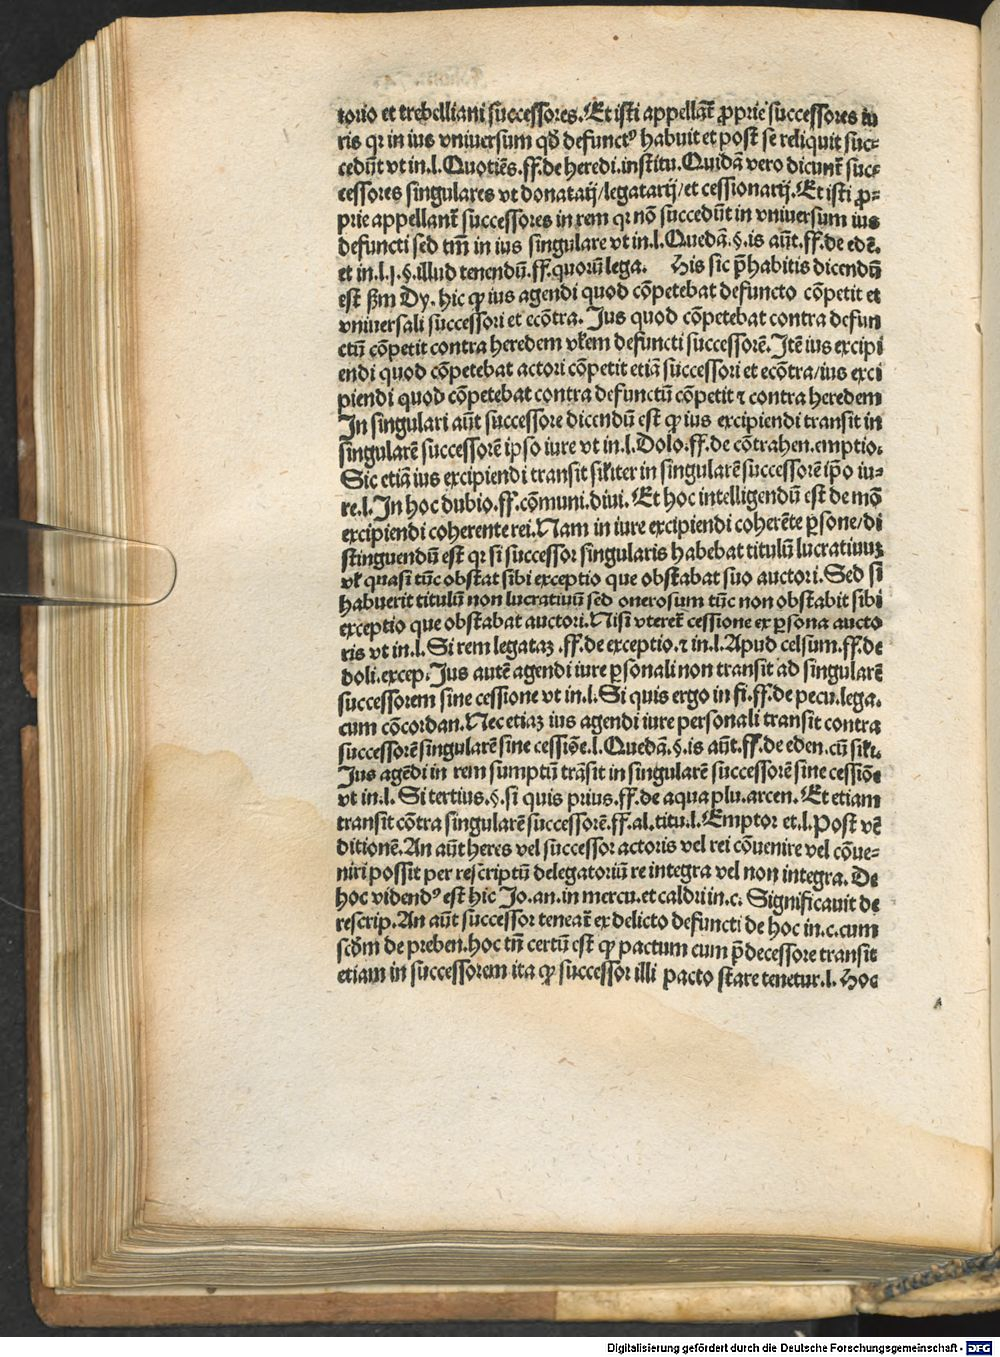 torio et trebelliani successores. Et isti appellāt̄ ꝓprie successores iu
ris qꝛ in ius vniuersum qd̄ defunctꝰ habuit et post se reliquit suc⸗
cedūt vt in .l. Quotiēs .ff. de heredi. institu. Quidā vero dicunt̄ suc⸗
cessores singulares vt donatarij/legatarij/et cessionarij. Et isti ꝓ⸗
prie appellant̄ successores in rem qꝛ nō succedūt in vniuersum ius
defuncti sed tm̄ in ius singulare vt in .l. Quedā .§. is aūt .ff. de edē.
et in .l. j .§. illud tenendū .ff. quorū lega. His sic p̄habitis dicendū
est ẜm Dy. hic ꝙ ius agendi quod cōpetebat defuncto cōpetit et
vniuersali successori et ecōtra. Ius quod cōpetebat contra defun
ctū cōpetit contra heredem vl̄em defuncti successorē. Itē ius excipi
endi quod cōpetebat actori cōpetit etiā successori et ecōtra/ius exci
piendi quod cōpetebat contra defunctū cōpetit ⁊ contra heredem
In singulari aūt successore dicendū est ꝙ ius excipiendi transit in
singularē successorē ipso iure vt in .l. Dolo .ff. de cōtrahen. emptio.
Sic etiā ius excipiendi transit sil̄iter in singularē successorē ip̄o iu⸗
re .l. In hoc dubio .ff. cōmuni. diui. Et hoc intelligendū est de mō
excipiendi coherente rei. Nam in iure excipiendi coherēte ꝑsone/di
stinguendū est qꝛ si successor singularis habebat titulū lucratiuuꝫ
vl̄ quasi tūc obstat sibi exceptio que obstabat suo auctori. Sed si
habuerit titulū non lucratiuū sed onerosum tūc non obstabit sibi
exceptio que obstabat auctori. Nisi vteret̄ cessione ex ꝑsona aucto
ris vt in .l. Si rem legataꝫ .ff. de exceptio. ⁊ in .l. Apud celsum .ff. de
doli. excep. Ius autē agendi iure ꝑsonali non transit ad singularē
successorem sine cessione vt in .l. Si quis ergo in fi .ff. de pecu. lega.
cum cōcordan. Nec etiaꝫ ius agendi iure personali transit contra
successorē singularē sine cessiōe .l. Quedā .§. is aūt .ff. de eden. cū sil̄i.
Ius agēdi in rem sumptū trāsit in singularē successorē sine cessiōe
vt in .l. Si tertius .§. si quis prius .ff. de aqua plu. arcen. Et etiam
transit cōtra singularē successorē .ff. al. titu .l. Emptor et .l. Post vē
ditionē. An aūt heres vel successor actoris vel rei cōuenire vel cōue⸗
niri possit per rescriptū delegatoriū re integra vel non integra. De
hoc videndꝰ est hic Jo. an. in mercu. et caldri in .c. Significauit de
rescrip. An aūt successor teneat̄ ex delicto defuncti de hoc in .c. cum
scd̄m de preben. hoc tn̄ certū est ꝙ pactum cum p̄decessore transit
etiam in successorem ita ꝙ successor illi pacto stare tenetur .l. Hoc
Digitalisierung gefördert durch die Deutsche Forschungsgemeinschaft - DFG